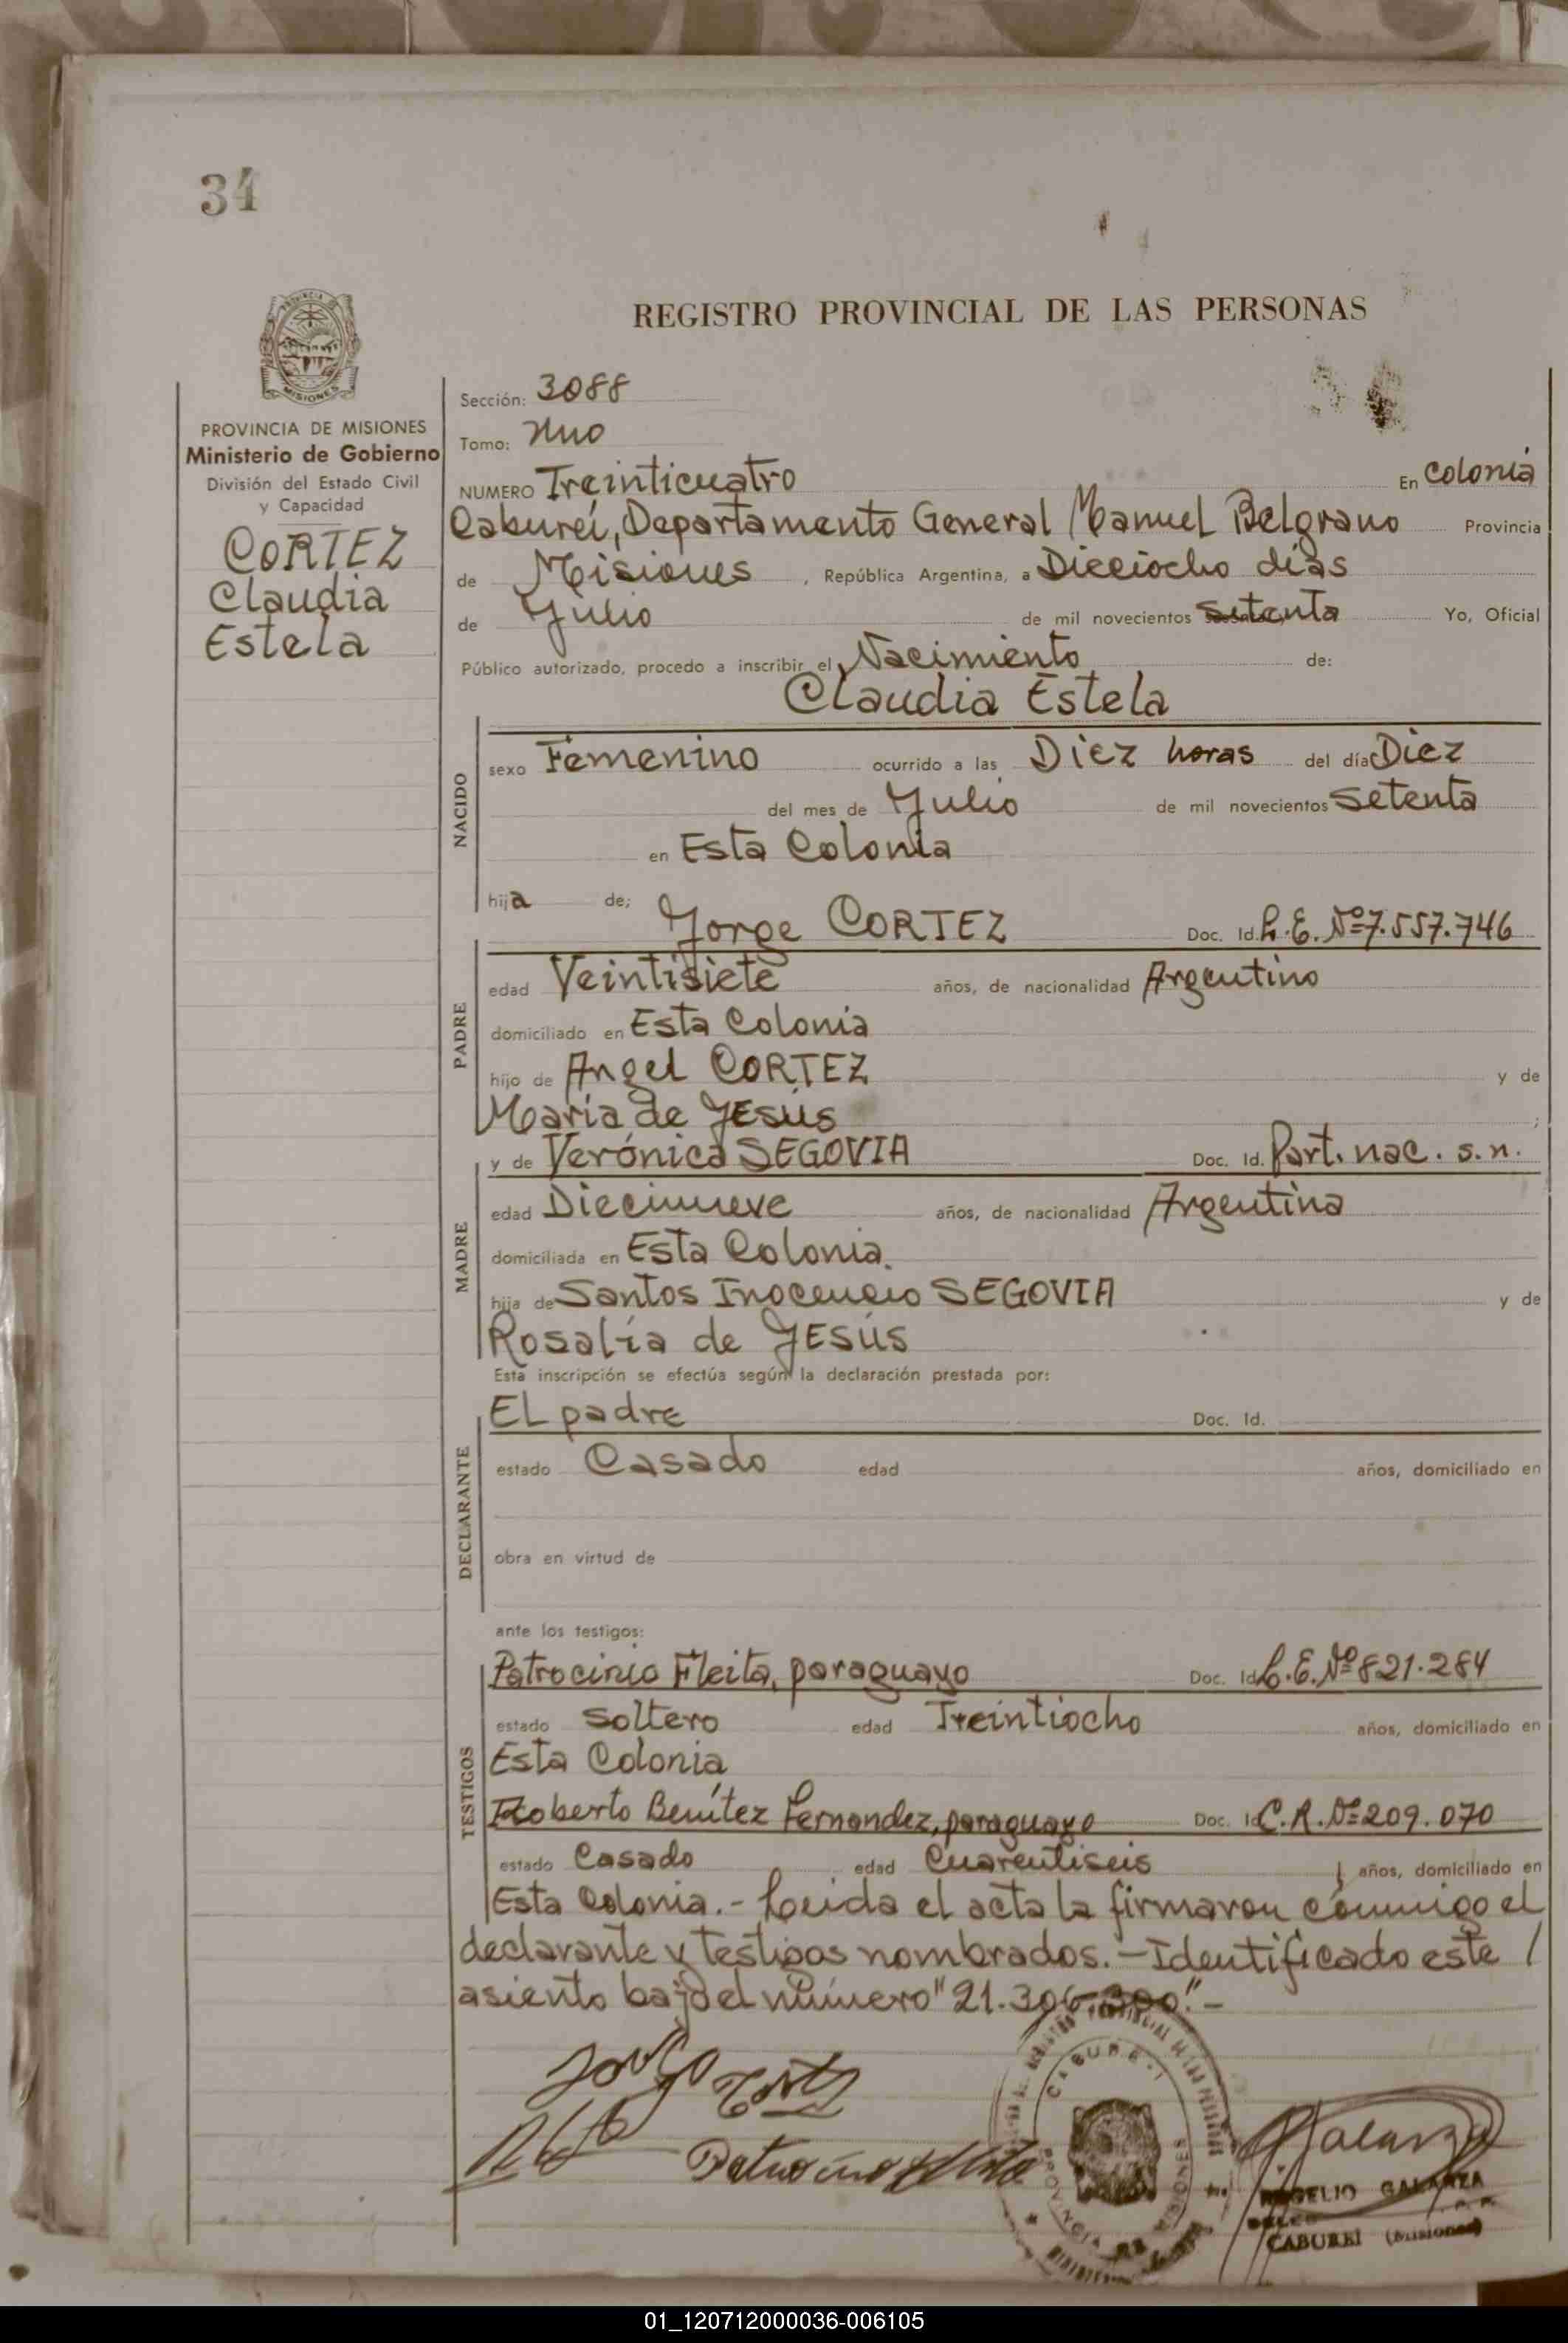 34
REGISTRO PROVINCIAL DE LAS PERSONAS
MISIONES
PROVINCIA DE MISIONES
Ministerio de Gobierno
División del Estado Civil
y Capacidad
CORTEZ
Claudia
Estela
Sección: 3088
Tomo: Uno
NUMERO Treinticuatro En Colonia
Caburei, Departamento General Manuel Belgrano Provincia
de Misiones, República Argentina, a Dieciocho días
de Julio de mil novecientos Setenta Yo, Oficial
Público autorizado, procedo a inscribir el Nacimiento de:
Claudia Estela
NACIDO
sexo Femenino ocurrido a las Diez horas del día Diez
del mes de Julio de mil novecientos Setenta
en Esta Colonia
hija de;
Jorge CORTEZ Doc. Id. L.E. Nº 7.557.746
PADRE
edad Veintisiete años, de nacionalidad Argentino
domiciliado en Esta Colonia
hijo de Angel CORTEZ y de
María de JESÚS ;
y de Verónica SEGOVIA Doc. Id. Part. nac. s.n.
MADRE
edad Diecinueve años, de nacionalidad Argentina
domiciliada en Esta Colonia.
hija de Santos Inocencio SEGOVIA y de
Rosalía de JESÚS
Esta inscripción se efectúa según la declaración prestada por:
DECLARANTE
EL padre Doc. Id.
estado Casado edad años, domiciliado en
obra en virtud de
ante los testigos:
TESTIGOS
Patrocinio Fleita, paraguayo Doc. Id L.E. Nº 821.284
estado Soltero edad Treintiocho años, domiciliado en
Esta Colonia
Roberto Benítez Fernandez, paraguayo Doc. Id C.R. Nº 209.070
estado Casado edad Cuarentiseis años, domiciliado en
Esta Colonia.- Leida el acta la firmaron conmigo el
declarante y testigos nombrados.-Identificado este /
asiento bajo el número "21.306.300".-
Jorge Cortez
Patrocinio Fleita
CABUREI
PROVINCIA DE MISIONES
Galarza
ROGELIO GALARZA
CABUREI (Misiones)
01_120712000036-006105